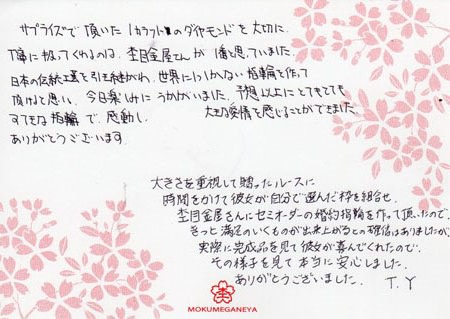 サプライズで頂いた1カラットのダイヤモンドを大切に、
丁寧に扱ってくれるのは、杢目金屋さんが1番と思っていました。
日本の伝統工芸を引き継がれ、世界に1つしかない指輪を作って
頂けると思い、今日楽しみにうかがいました。予想以上にとてもとても
すてきな指輪で、感動し、大きな愛情を感じることができました。
ありがとうございます。
大きさを重視して贈ったルースに
時間をかけて彼女が自分で選んだ枠を組合せ、
杢目金屋さんにセミオーダーの婚約指輪を作って頂いたので、
きっと満足のいくものが出来上がるとの確信はありましたが、
実際に完成品を見て彼女が喜んでくれたので、
その様子を見て本当に安心しました。
ありがとうございました。 T.Y
MOKUMEGANEYA